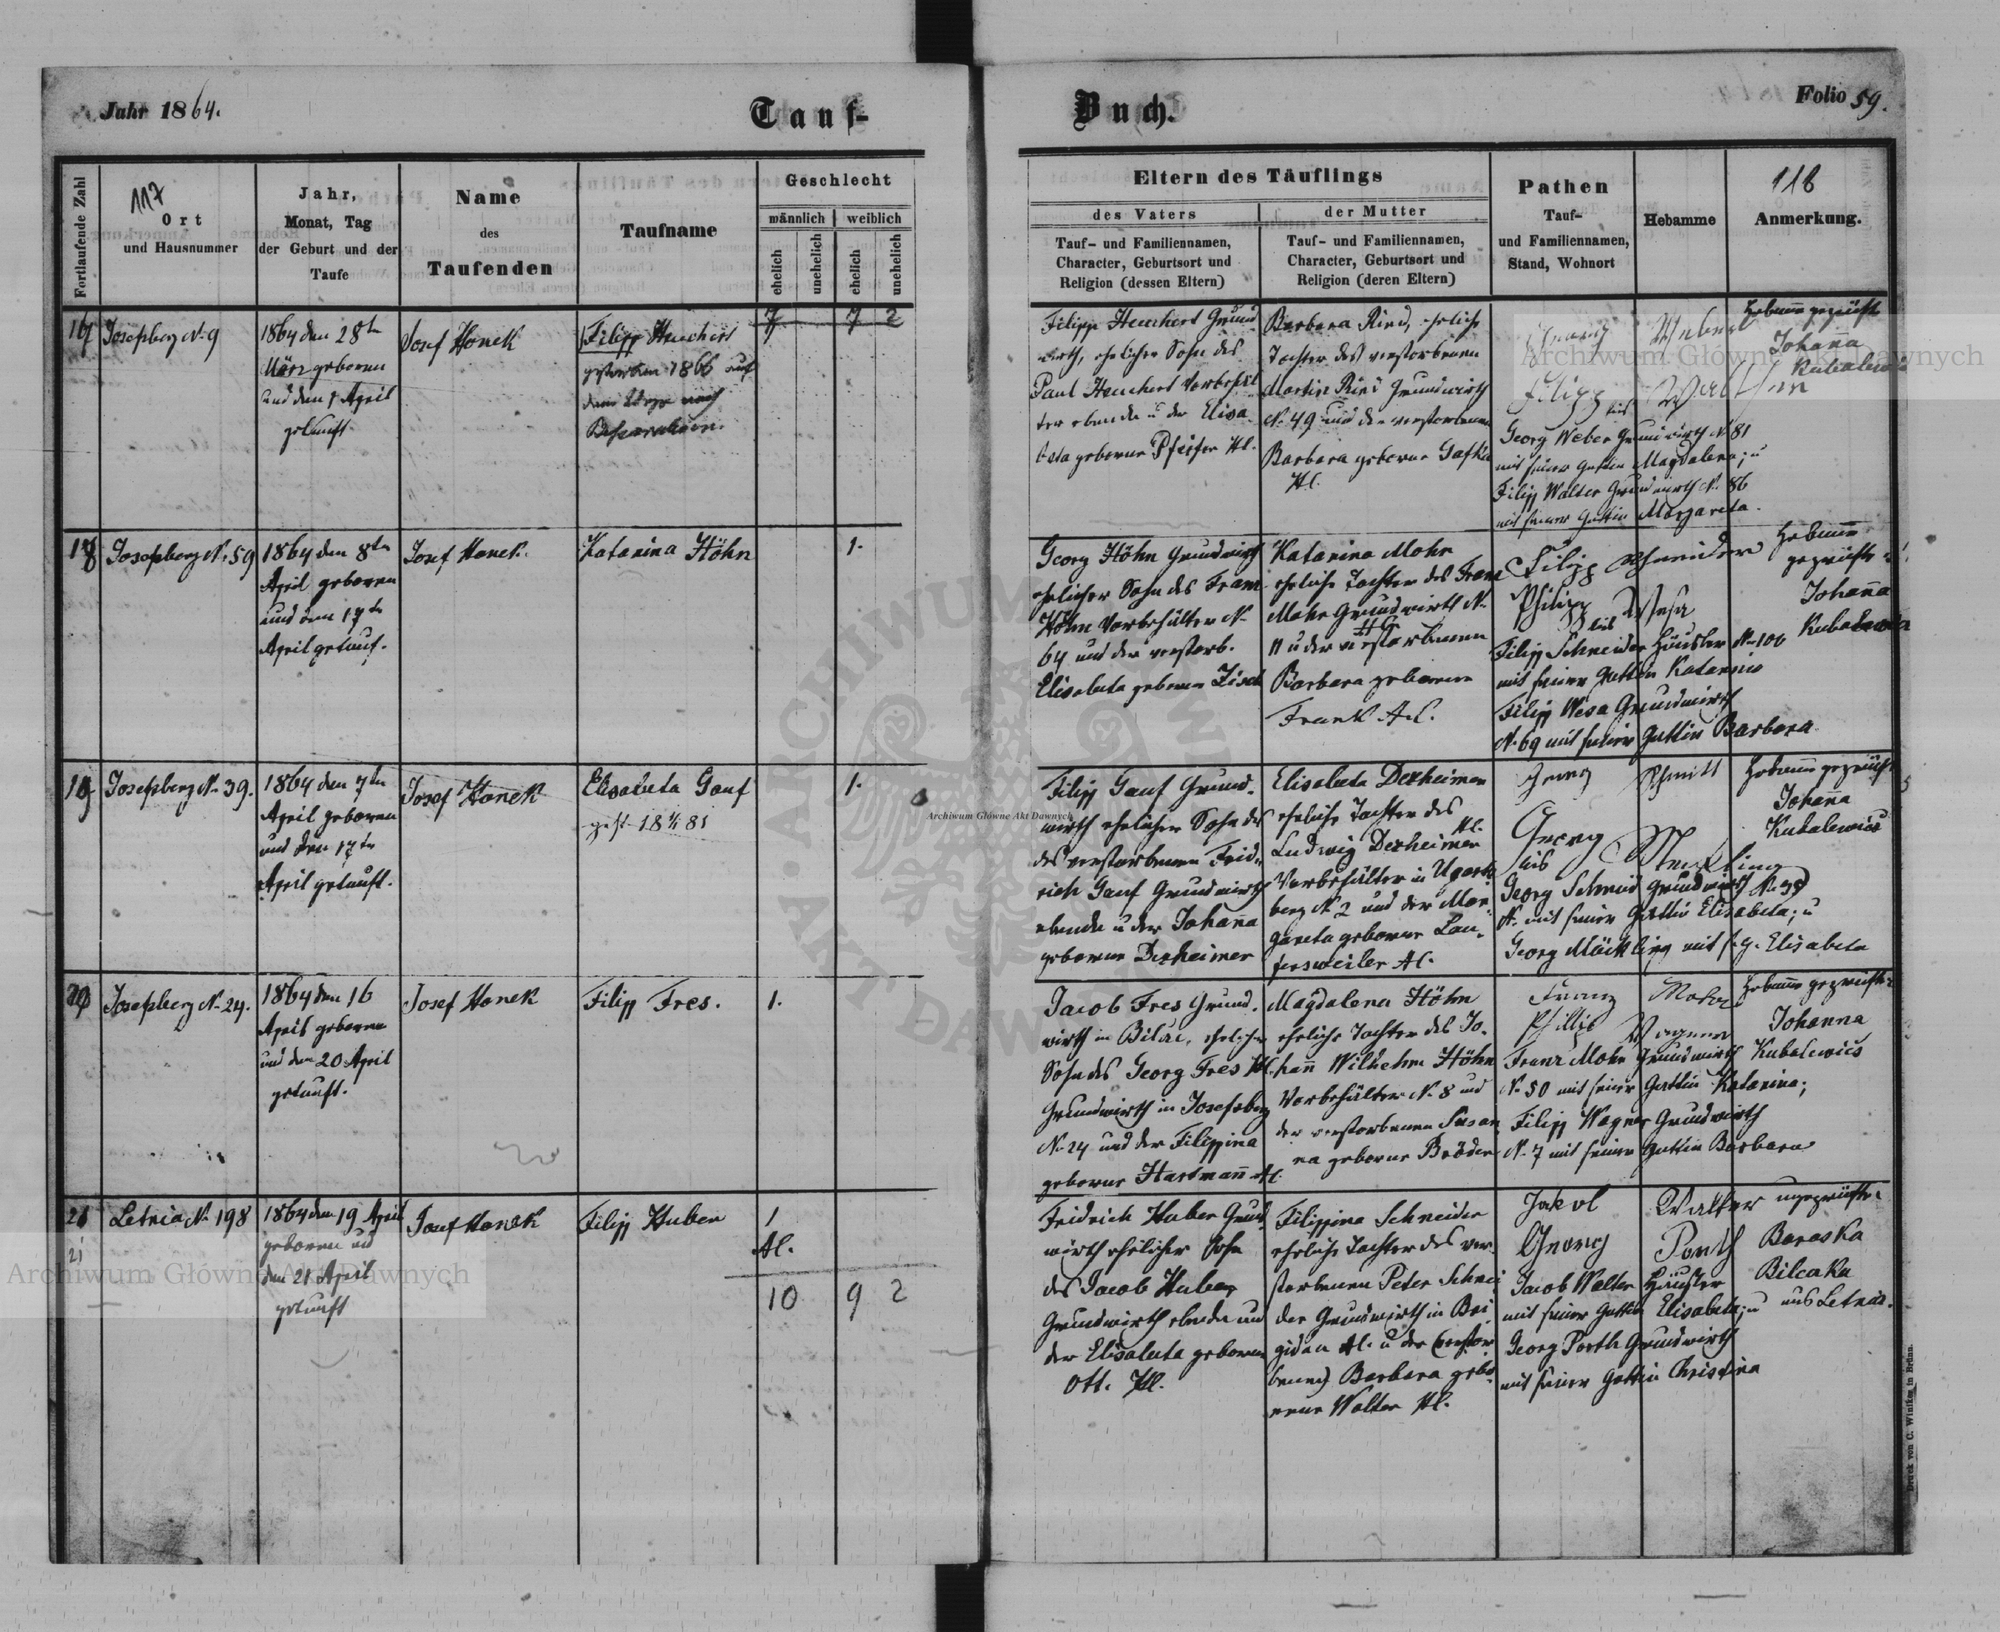 Jahr 1864.
Tauf-
Buch.
Folio 59.
Fortlaufende Zahl
117
Ort
und Hausnummer
Jahr,
Monat, Tag
der Geburt und der
Taufe
Name
des
Taufenden
Taufname
Geschlecht
männlich
weiblich
ehelich
unehelich
ehelich
unehelich
Eltern des Täuflings
des Vaters
Tauf- und Familiennamen,
Character, Geburtsort und
Religion (dessen Eltern)
der Mutter
Tauf- und Familiennamen,
Character, Geburtsort und
Religion (deren Eltern)
Pathen
Tauf-
und Familiennamen,
Stand, Wohnort
Hebamme
118
Anmerkung.
Josefsberg N. 9
1864 den 28tn
März geboren
und den 1 April
getauft
Josef Honek
Filipp Henchert
gestorben 1866 auf
dem Wege nach
7 7 2
Filipp Henchert Grund
wirth, ehelicher Sohn des
Paul Henchert Vorbehäl
ter ebenda u der Elisa
beta geborne Pfeifer Hl.
Barbara Ried, eheliche
Tochter des verstorbenen
Martin Ried Grundwirth
N. 49 und der verstorbenen
Barbara geborne
Hl.
Georg Weber
Filipp Walther
bis
Georg Weber Grundwirth N. 81
mit seiner Gattin Magdalena; u
Filipp Walter Grundwirth N. 86
mit seiner Gattin Margareta.
Hebamme geprüfte
Johanna
18
Josefsberg N. 59
1864 den 8tn
April geboren
und den 17tn
April getauf.
Josef Honek.
Katarina Höhn
1.
Georg Höhn Grundwirth
ehelicher Sohn des Franz
Höhn Vorbehälter N.
64 und der verstorb.
Elisabeta geborne
Katarina Mohr
eheliche Tochter des Franz
Mohr Grundwirth N.
11 u der verstorbenen
Barbara geborene
Frank
Filipp Schneider
Philipp Wesa
bis
Filipp Schneider Häusler N. 100
mit seiner Gattin Katarina
Filipp Wesa Grundwirth
N. 69 mit seiner Gattin Barbara
Hebamme
geprüfte
Johanna
19
Josefsberg N. 39.
1864 den 7tn
April geboren
und den 17tn
April getauft.
Josef Honek
Elisabeta Gauf
1.
Filipp Gauf Grund-
wirth ehelicher Sohn des
des verstorbenen Frid-
rich Gauf Grundwirth
ebenda u der Johanna
geborne Dexheimer
Elisabeta Dexheimer
eheliche Tochter des
Hl.
Ludwig Dexheimer
Vorbehälter in Ugarts
berg N 2 und der Mar-
gareta geborne Lau-
fersweiler
Georg Schmitt
Georg
bis
Georg Schmid Grundwirth N. 38
mit seiner Gattin Elisabeta; u
Georg Möckling mit s. g. Elisabeta
Hebamme geprüfte
Johanna
Kubalewics
20
Josefsberg N. 24.
1864 den 16
April geboren
und den 20 April
getauft.
Josef Honek
Filipp Fres.
1.
Jacob Fres Grund-
wirth in Bilcze, ehelicher
Sohn des Georg Fres Hl.
Grundwirth in Josefsberg
N. 24 und der Filippina
geborne Hartmann
Magdalena Höhn
eheliche Tochter des Jo-
hann Wilhelm Höhn
Vorbehälter N. 8 und
der verstorbenen Susan
na geborne Bröder
Franz Mohr
Phillip Wagner
Franz Mohr Grundwirth
N. 50 mit seiner Gattin Katarina;
Filipp Wagner Grundwirth
N. 7 mit seiner Gattin Barbara
Hebamme geprüfte
Johanna
Kubalewics
21
21
Letnia N. 198
1864 den 19 April
geboren und
den 21 April
getauft
Josef Honek
Filipp Huber
1
10 9 2
Fridrich Huber Grund
wirth ehelicher Sohn
des Jacob Huber
Grundwirth ebenda und
der Elisabeta geborne
Ott. Hl.
Filippina Schneider
eheliche Tochter des ver-
storbenen Peter Schnei
der Grundwirth in Bri
gidau u der (verstor
benen) Barbara gebo
rene Walter Hl.
Jakob Walter
Georg Porth
Jacob Walter Häusler
mit seiner Gattin Elisabeta; u
Georg Porth Grundwirth
mit seiner Gattin Christina
ungeprüfte
Baraska
Bilcaka
aus Letnia.
Druck von C. Winiker in Brünn.
Archiwum Główne Akt Dawnych
Archiwum Główne Akt Dawnych
Archiwum Główne Akt Dawnych